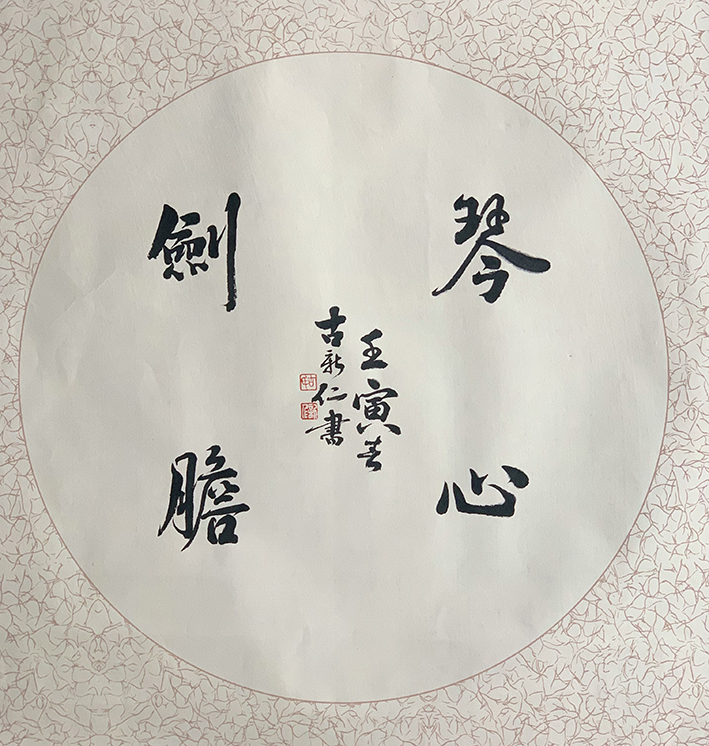 琴心
劍膽
壬寅春
古新仁書